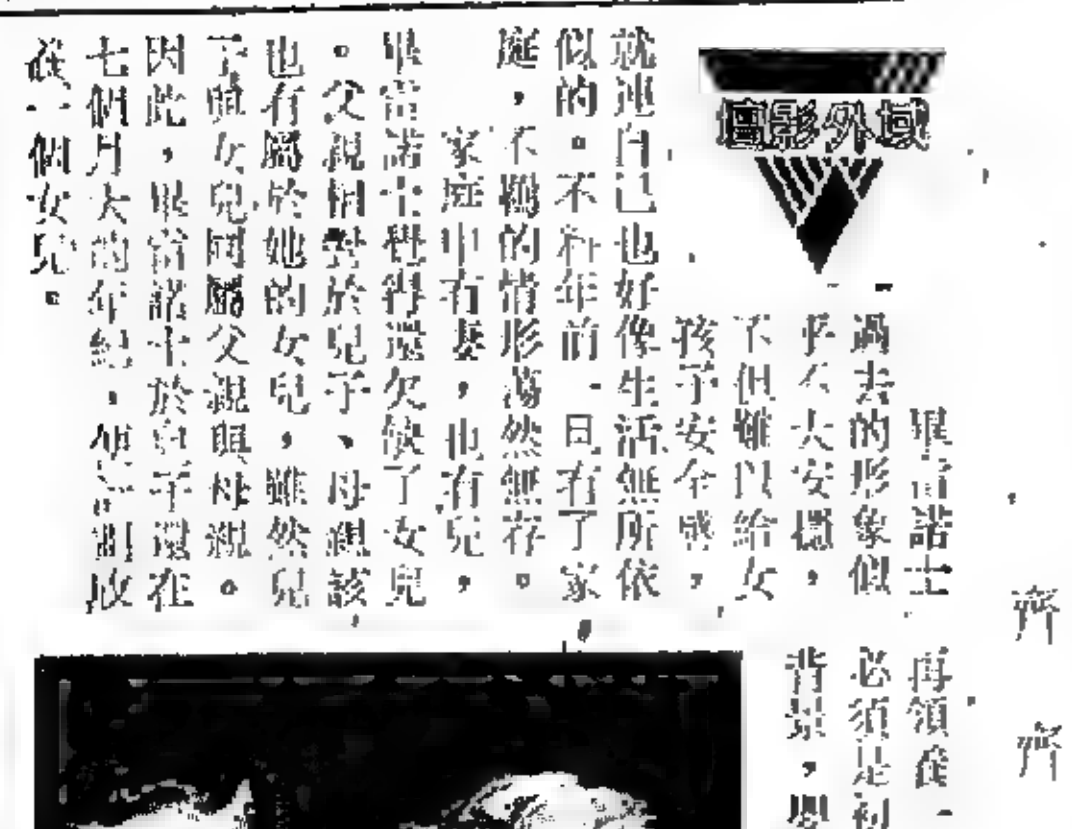 域外影壇
齊齊
畢雷諾士
過去的形象似
乎不大安穩，
不但難以給女
孩子安全感，
就連自己也好像生活無所依
似的。不料年前一旦有了家
庭，不羈的情形蕩然無存。
家庭中有妻，也有兒，
畢雷諾士覺得還欠缺了女兒
。父親相對於兒子、母親該
也有屬於她的女兒，雖然兒
子與女兒同屬父親與母親。
因此，畢雷諾士於兒子還在
七個月大的年紀，便計劃收
養一個女兒。
再領養一
必須是初
背景，嬰